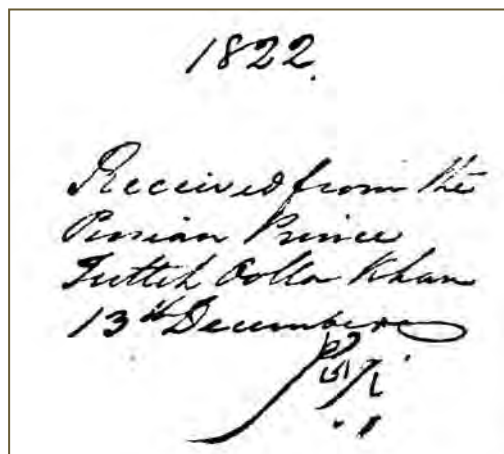 1822.
Received from the
Persian Prince
Futteh Oolla Khan
13th December